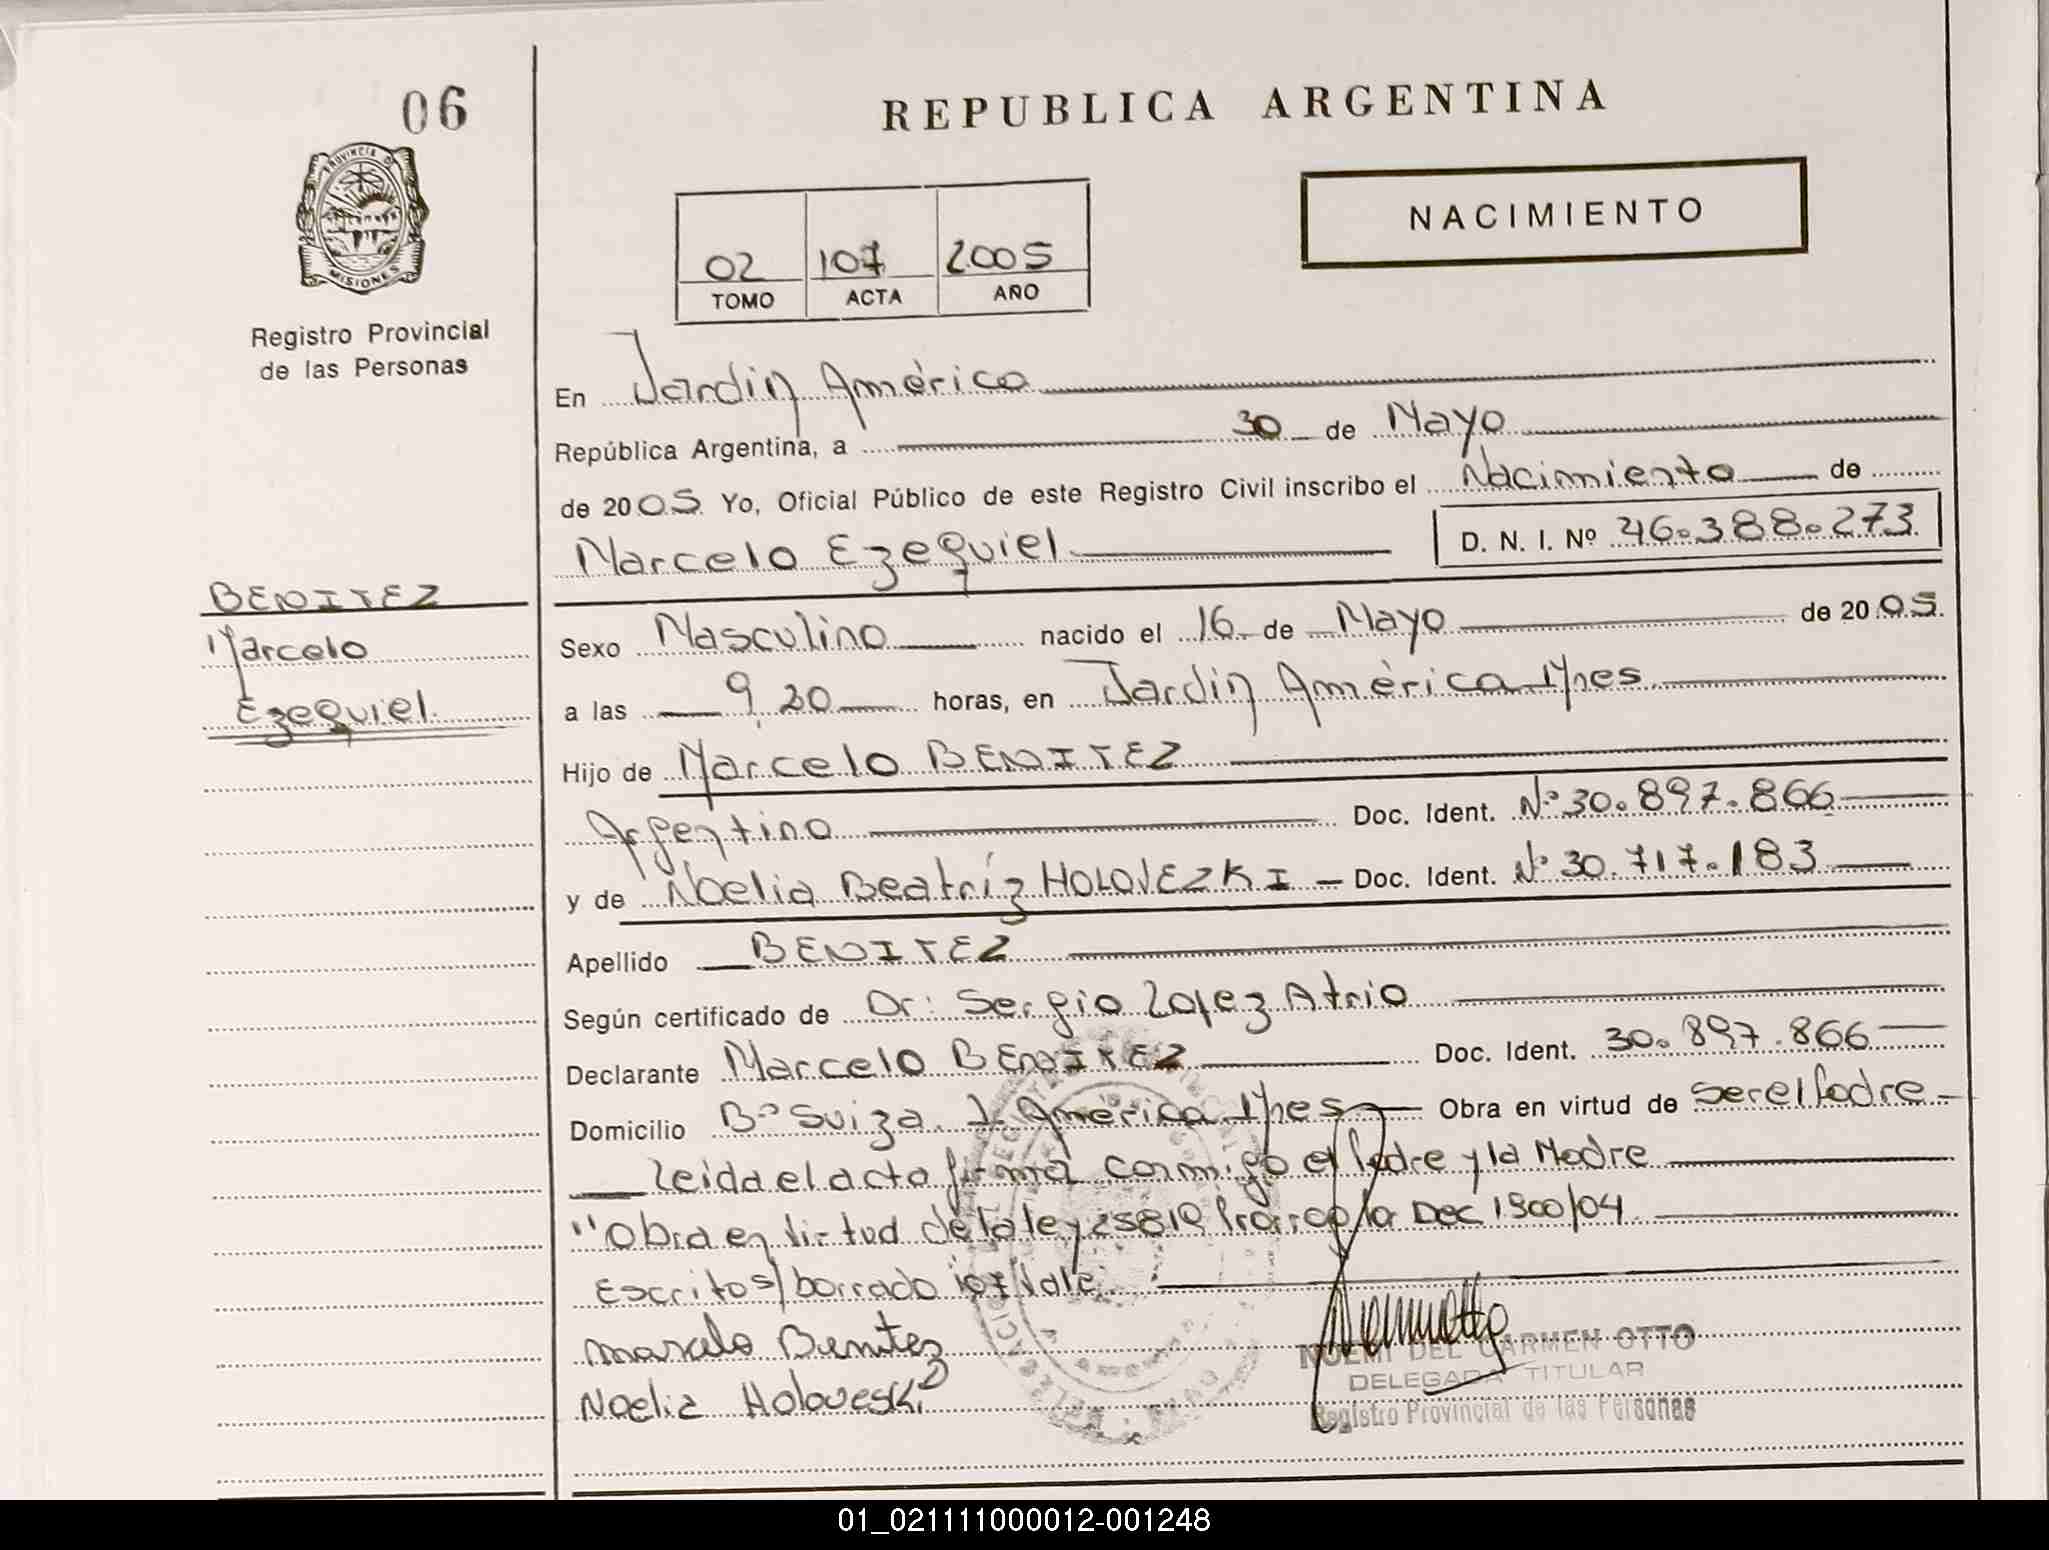 06
REPUBLICA ARGENTINA
PROVINCIA DE
MISIONES
NACIMIENTO
02 107 2005
TOMO ACTA AÑO
Registro Provincial
de las Personas
En Jardin América
República Argentina, a 30 de Mayo
de 2005 Yo, Oficial Público de este Registro Civil inscribo el Nacimiento de
Marcelo Ezequiel D. N. I. Nº 46.388.273
BENITEZ
Marcelo
Ezequiel
Sexo Masculino nacido el 16 de Mayo de 2005
a las 9,20 horas, en Jardin América Mnes
Hijo de Marcelo BENITEZ
Argentino Doc. Ident. Nº 30.897.866
y de Noelia Beatríz HOLOVEZKI Doc. Ident. Nº 30.717.183
Apellido BENITEZ
Según certificado de Dr: Sergio Lopez Atrio
Declarante Marcelo BENITEZ Doc. Ident. 30.897.866
Domicilio Bº Suiza J. América Mnes Obra en virtud de ser el Padre
Leida el acta firma conmigo el Padre y la Madre
"Obra en Virtud de la ley 25819 Prorrog p/ Dec 1900/04
Escrito s/ borrado 107 Vale
Marcelo Benitez
Noelia Holoveski
NOEMI DEL CARMEN OTTO
DELEGADA TITULAR
Registro Provincial de las Personas
01_021111000012-001248